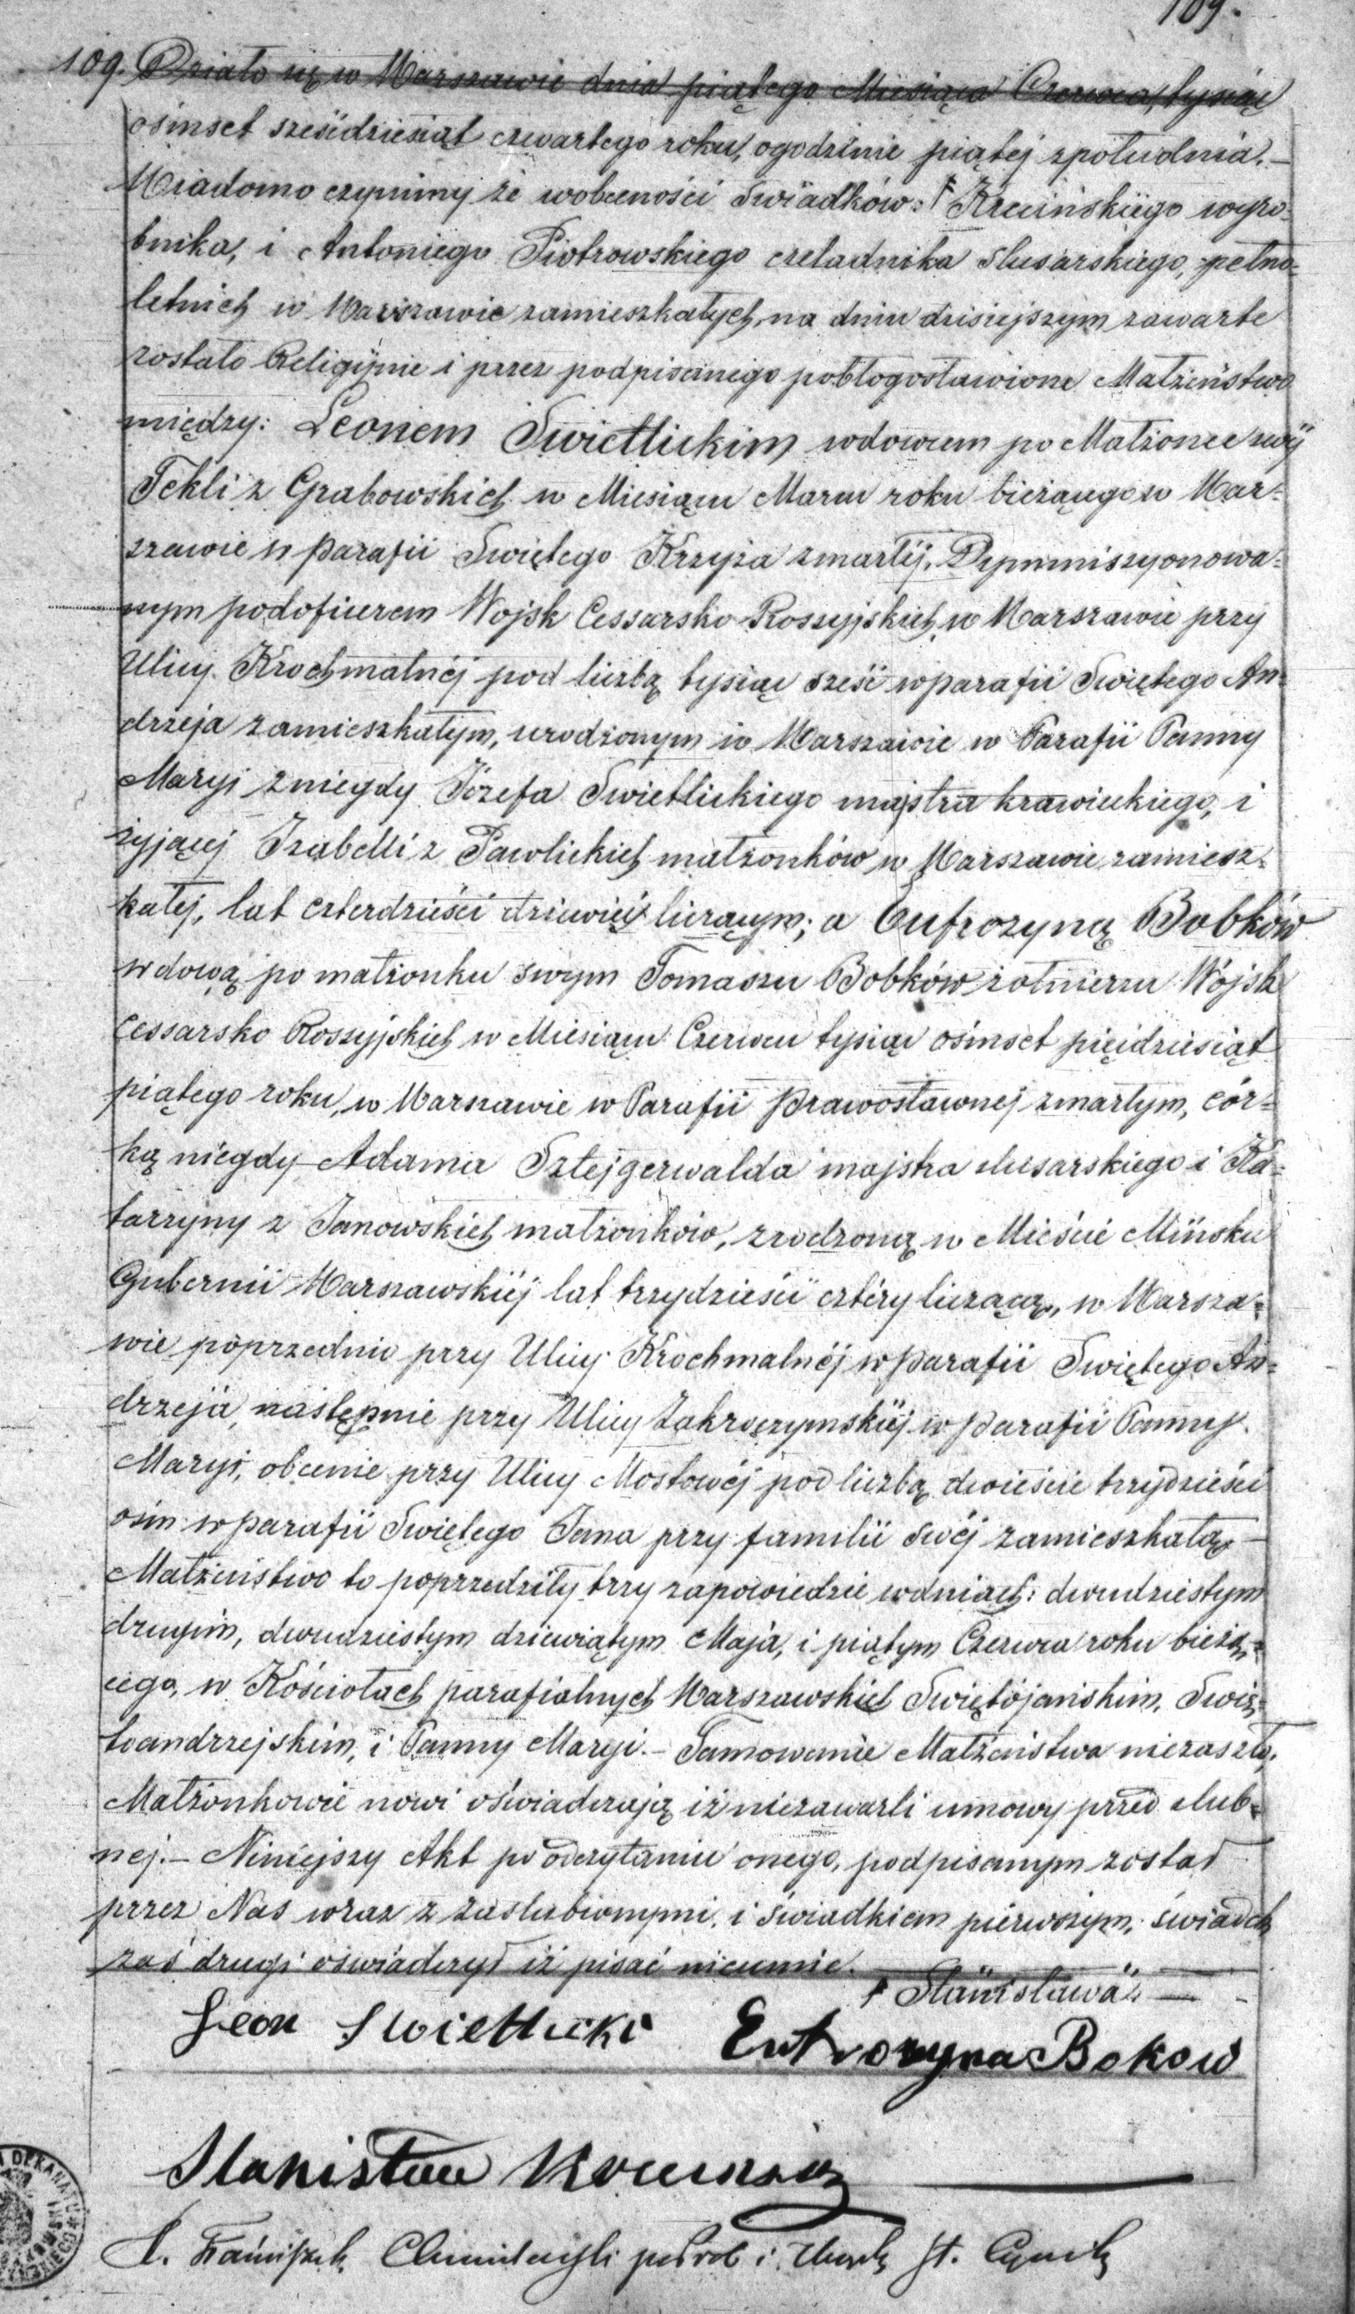 109.
109. Działo się w Warszawie dnia piątego Miesiąca Czerwca tysiąc
ośmset sześćdziesiąt czwartego roku, o godzinie piątej zpołudnia.—
Wiadomo czynimy że wobecności Świadków: Krecińskiego wyro-
bnika, i Antoniego Piotrowskiego czeladnika slusarskiego, pełno-
letnich w Warszawie zamieszkałych, na dniu dzisiejszym zawarte
zostało Religijnie i przez podpisanego pobłogosławione Małżeństwo
między: Leonem Swietlickim wdowcem po Małżonce swéj
Tekli z Grabowskich w Miesiącu Marcu roku bieżącego w War-
szawie w parafii Swiętego Krzyża zmarłéj, Dymmissyonowa-
nym podoficerem Wojsk Cessarsko Rossyjskich, w Warszawie przy
Ulicy Krochmalnéj pod liczbą tysiąc sześć w parafii Swiętego An-
drzeja zamieszkałym, urodzonym w Warszawie w Parafii Panny
Maryi z niegdy Józefa Swietlickiego majstra krawieckiego, i
żyjącej Izabelli z Pawlickich małżonków w Warszawie zamiesz-
kałej, lat czterdzieści dziewięć liczącym; a Eufrozyną Bobków
wdową po małżonku swym Tomaszu Bobków żołnierzu Wojsk
Cessarsko Rossyjskich w Miesiącu Czerwcu tysiąc ośmset pięćdziesiąt
piątego roku, w Warszawie w Parafii Prawosławnej zmarłym, cór-
ką niegdy Adama Sztejgerwalda majstra slusarskiego i Ka-
tarzyny z Janowskich małżonków, zrodzoną w Mieście Mińsku
Gubernii Warszawskiéj lat trzydzieści cztéry liczącą, w Warsza-
wie poprzednio przy Ulicy Krochmalnéj w parafii Swiętego An-
drzeja, następnie przy Ulicy Zakroczymskiéj w parafii Panny
Maryi, obecnie przy Ulicy Mostowéj pod liczbą dwieście trzydzieści
ośm w parafii Swiętego Jana przy familii swéj zamieszkałą—
Małżeństwo to poprzedziły trzy zapowiedzie w dniach: dwudziestym
drugim, dwudziestym dziewiątym Maja, i piątym Czerwca roku bieżą-
cego, w Kościołach parafialnych Warszawskich Swiętojańskim, Swię-
toandrzejskim, i Panny Maryi.— Tamowanie Małżeństwa niezaszło,
Małżonkowie nowi oświadczają iż niezawarli umowy przed slub-
nej.— Niniejszy Akt po odczytaniu onego, podpisanym został
przez Nas wraz z zaslubionymi, i świadkiem pierwszym, świadek
zaś drugi oświadczył iż pisać nieumie.
Stanisława.—
Leon Swietlicki Eufrozyna Bokow
Stanisław